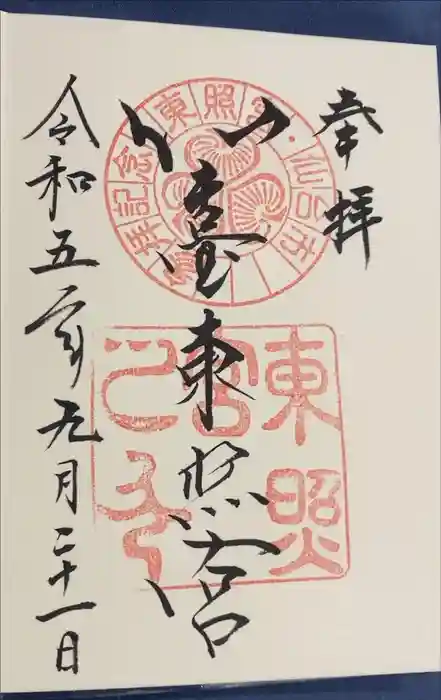 奉拝
仙臺東照宮
令和五年九月二十一日
東照宮・仙台市
拝記念
東照
宮
之印